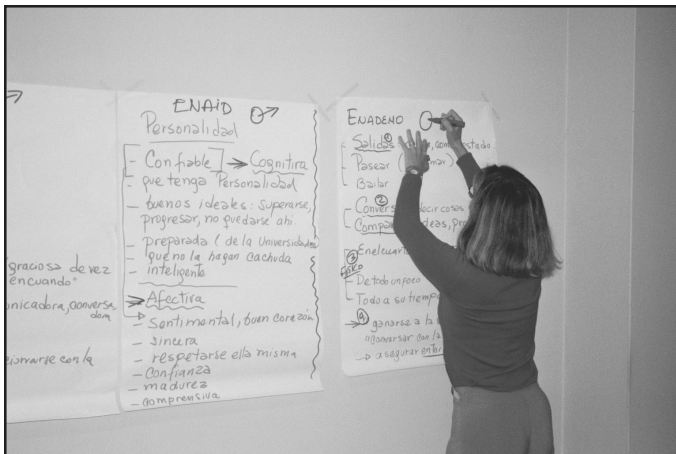 graciosa de vez
en cuando"
nicadora, conversa
dora
cionarse con la
ENAID
Personalidad
- Confiable → Cognitira
- que tenga Personalidad
- buenos ideales: Superarse,
progresar, no quedarse ahi.
- preparada (de la Universidad
- que no la hagan cachuda
- inteligente
Afectiva
- Sentimental, buen corazón
- sincera
- respetarse ella misma
- Confianza
- madurez
- comprensiva
ENADENO
① Salidas
Pasear (mar)
Bailar
②
Convers decir cosas
Compa deas,
③ En el cuart
fisico
De todo un poco
Todo a su tiempo
④ ganarse a la
"conversar con la
→ asegurar